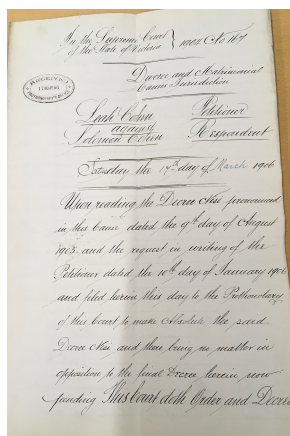 In the Supreme Court
of the State of Victoria } 1904 No 167
Divorce and Matrimonial
Causes Jurisdiction
Leah Cohn Petitioner
against
Solomon Cohn Respondent
Saturday the 17th day of March 1906
Upon reading the Decree Nisi pronounced
in this Cause dated the 9th day of August
1905 and the request in writing of the
Petitioner dated the 10th day of January 1906
and filed herein this day to the Prothonotary
of this Court to make Absolute the said
Decree Nisi and there being no matter in
opposition to the final Decree herein now
pending This Court doth Order and Decree